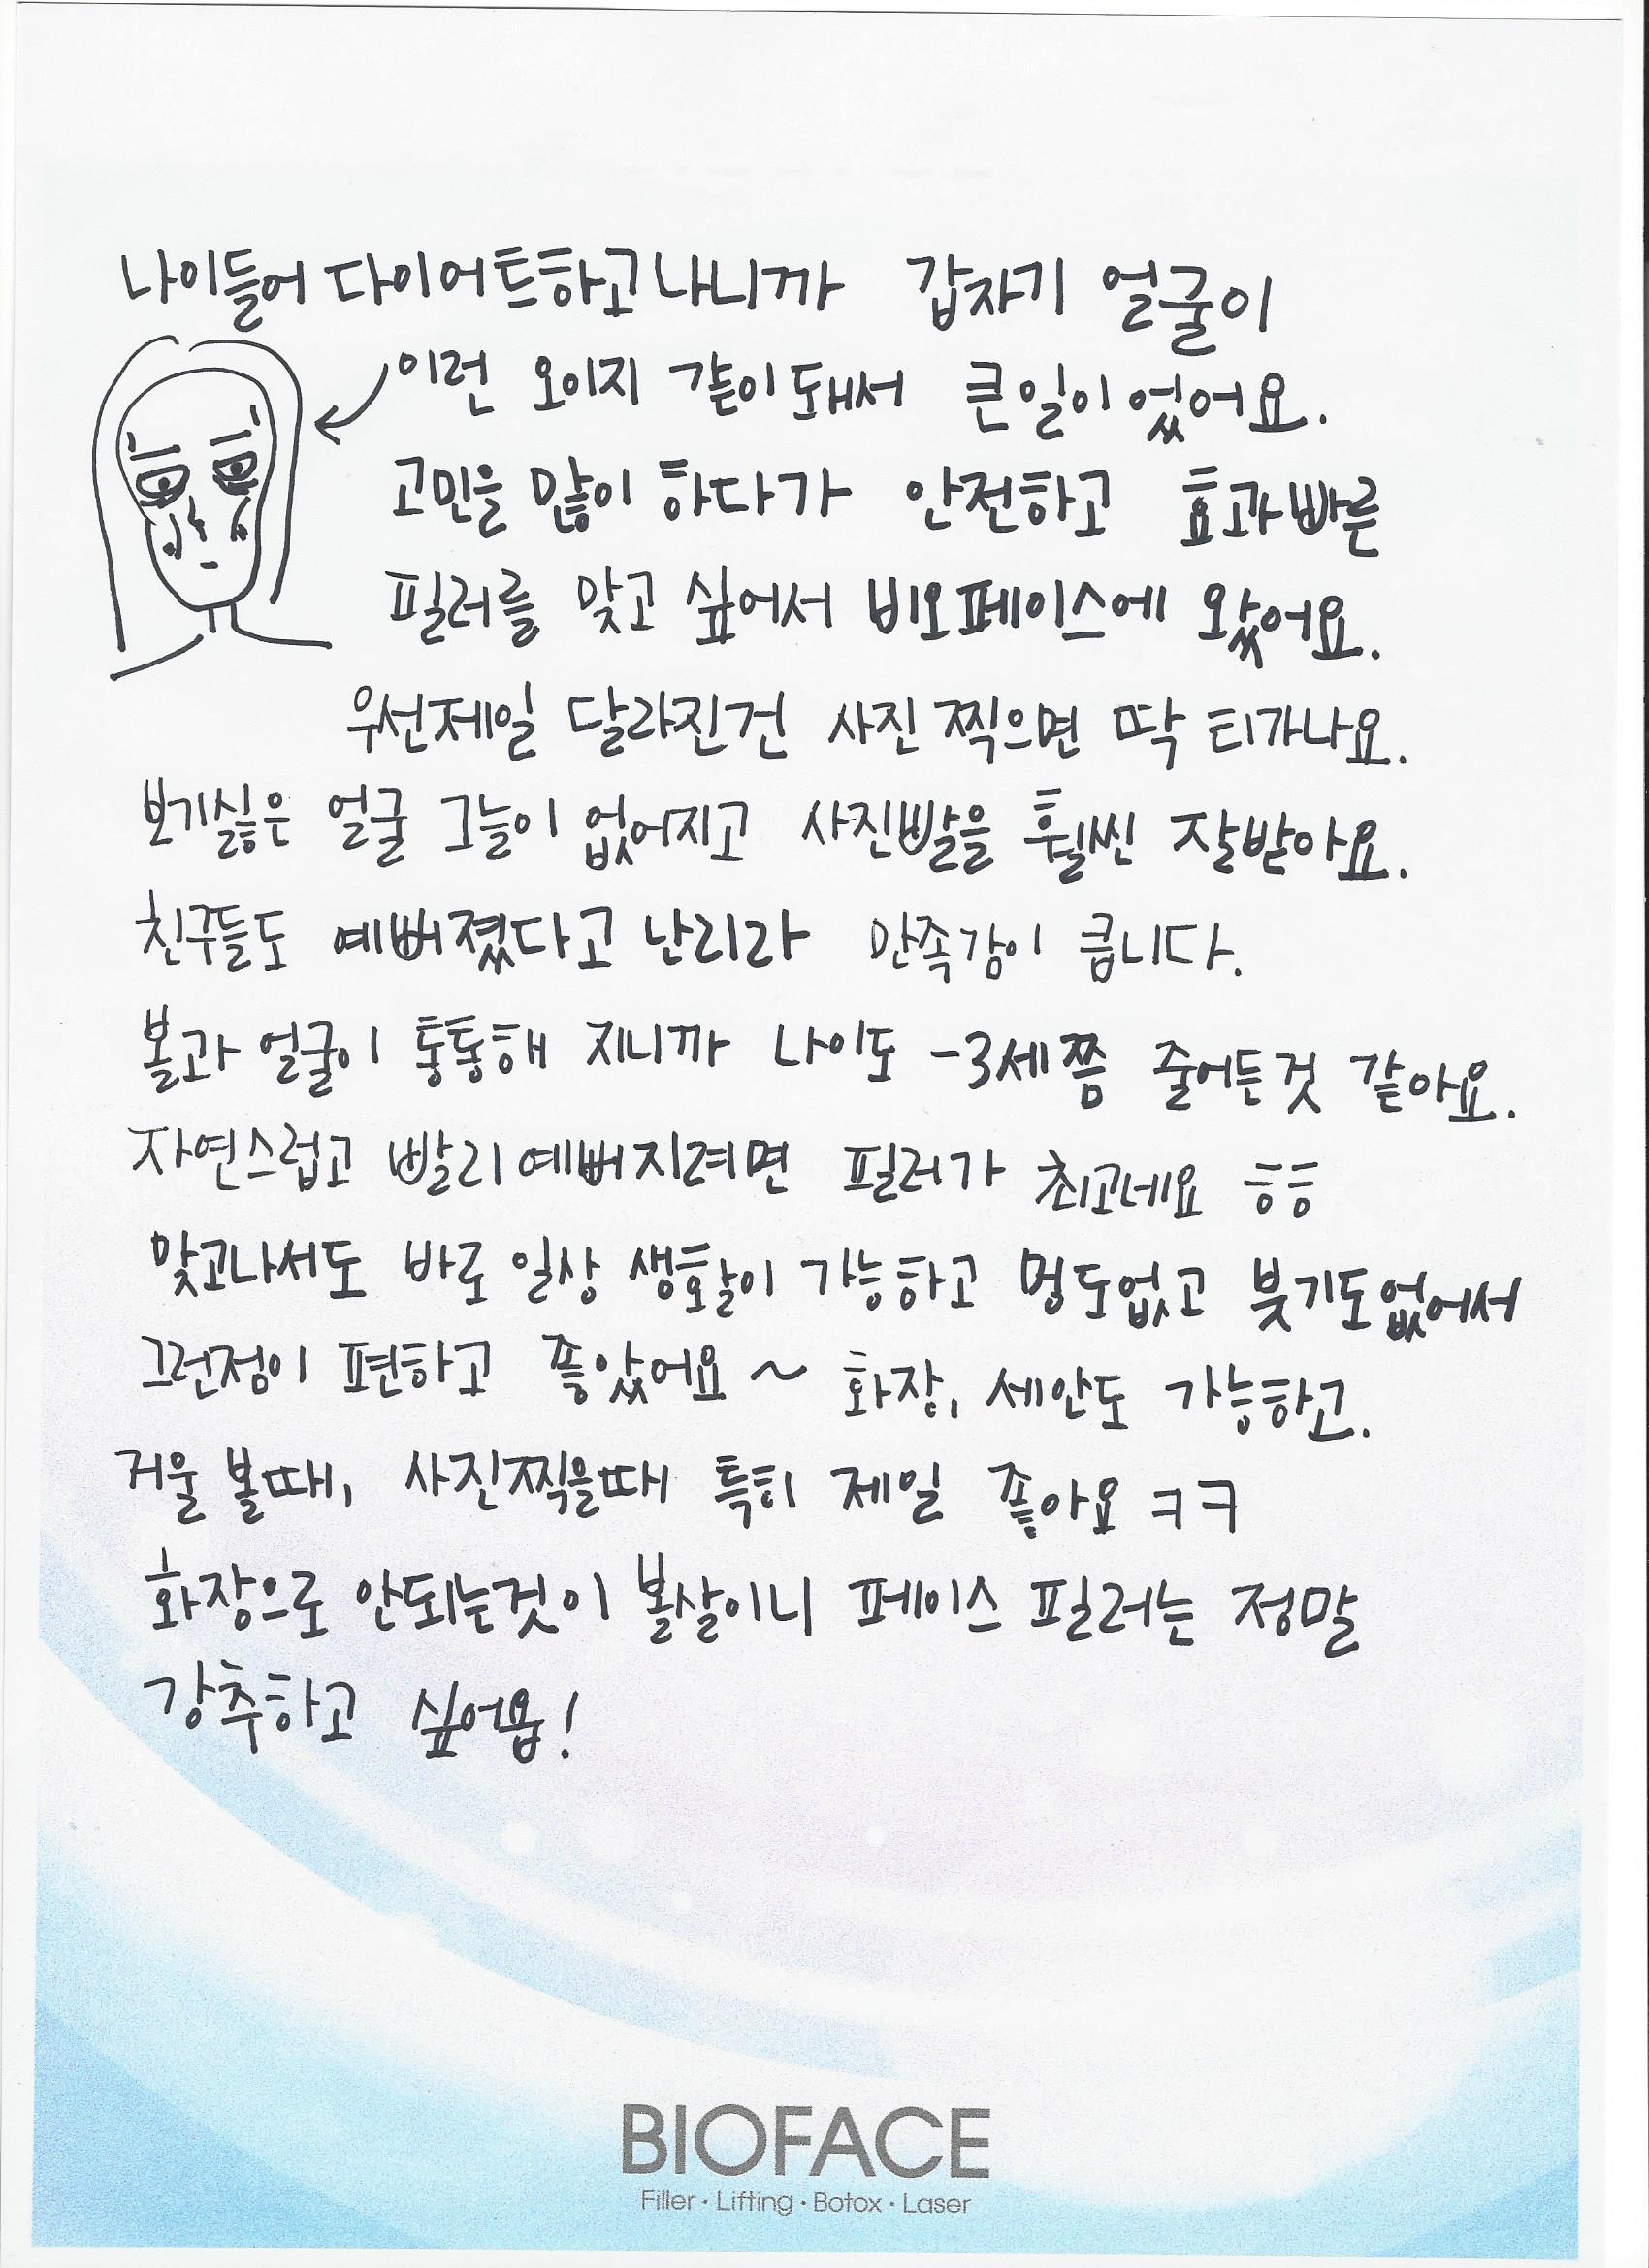 나이들어 다이어트하고나니까 갑자기 얼굴이
이런 오이지 같이 돼서 큰일이었어요.
고민을 많이 하다가 안전하고 효과빠른
필러를 맞고 싶어서 비오페이스에 왔어요.
우선제일 달라진건 사진 찍으면 딱 티가나요.
보기싫은 얼굴 그늘이 없어지고 사진빨을 훨씬 잘받아요.
친구들도 예뻐졌다고 난리라 만족감이 큽니다.
볼과 얼굴이 통통해 지니까 나이도 -3세쯤 줄어든것 같아요.
자연스럽고 빨리 예뻐지려면 필러가 최고네요 ㅎㅎ
맞고나서도 바로 일상 생활이 가능하고 멍도없고 붓기도없어서
그런점이 편하고 좋았어요~ 화장, 세안도 가능하고.
거울 볼때, 사진찍을때 특히 제일 좋아요 ㅋㅋ
화장으로 안되는것이 볼살이니 페이스 필러는 정말
강추하고 싶어욥!
BIOFACE
Filler · Lifting · Botox · Laser